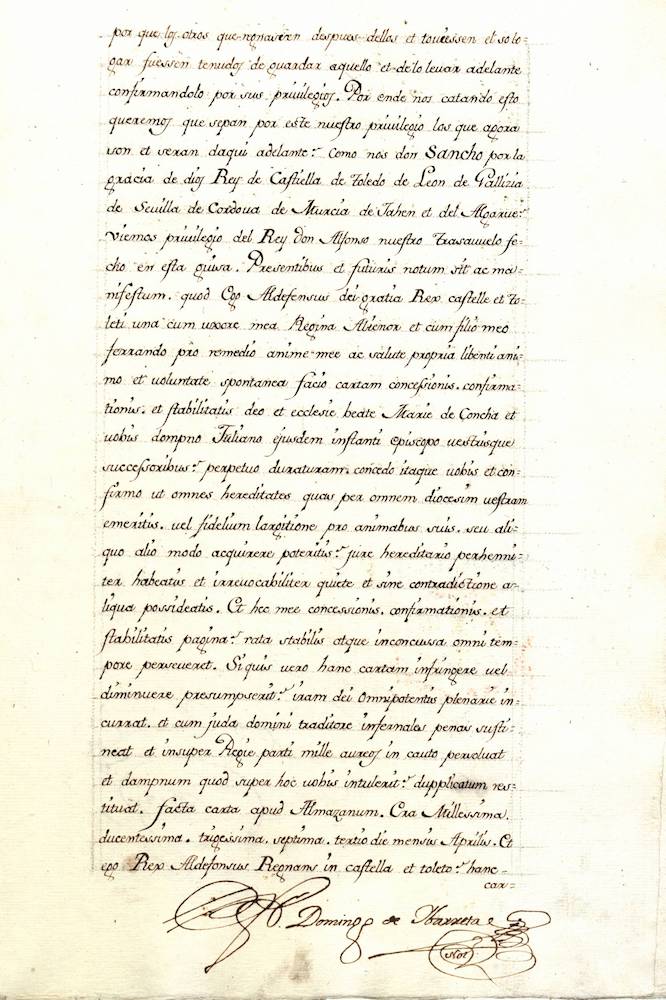 por que los otros que regnasen despues dellos et touiessen el so lo-
gar fuessen tenudos de guardar aquello et de lo leuar adelante
confirmandolo por sus priuilegios. Por ende nos catando esto
queremos que sepan por este nuestro priuilegio los que agora
son et seran daqui adelante: Como nos don Sancho por la
gracia de dios Rey de Castiella de Toledo de Leon de Gallizia
de Seuilla de Cordoua de Murcia de Jahen et del Algarue:
Viemos priuilegio del Rey don Alfonso nuestro Trasauuelo fe-
cho en esta guisa. Presentibus et futuris notum sit ac ma-
nifestum. quod Ego Aldefensus dei gratia Rex castelle et to-
leti una cum uxore mea Regina Alienor et cum filio meo
ferrando pro remedio anime mee ac salute propria libenti ani-
mo et voluntate spontanea facio cartam concessionis. confirma-
tionis. et stabilitatis deo et ecclesie beate Marie de Concha et
uobis dompno Juliano ejusdem instanti Episcopo uestrisque
successoribus: perpetuo duraturam. concedo itaque uobis et con-
firmo ut omnes hereditates quas per omnem diocesim uestram
emeritis. vel fidelium largitione pro animabus suis. seu ali-
quo alio modo acquirere poteritis: jure hereditario perhenni-
ter habeatis et irreuocabiliter quiete et sine contradictione a-
liqua possideatis. Et hec mee concessionis. confirmationis. et
stabilitatis pagina: rata stabilis atque inconcussa omni tem-
pore perseueret. Si quis uero hanc cartam infringere vel
diminuere presumpserit: iram dei Omnipotentis plenarie in-
currat. et cum juda domini traditore infernales penas susti-
neat et insuper Regie parti mille aureos in cauto persoluat
et dampnum quod super hoc uobis intulerit: dupplicatum res-
tituat. facta carta apud Almazanum. Era Millessima.
ducentessima. trigessima. septima. tertio die mensis Aprilis. Et
ego Rex Aldefonsus Regnans in castella et toleto: hanc-
car-
Domingo de Ybarreta
Not